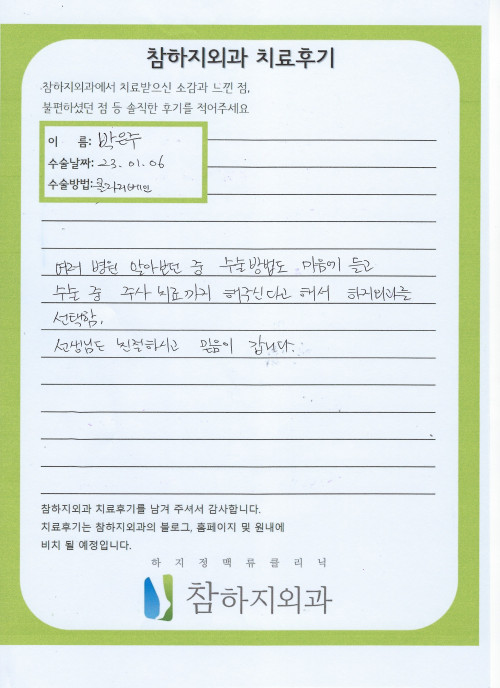 참하지외과 치료후기
참하지외과에서 치료받으신 소감과 느낀 점,
불편하셨던 점 등 솔직한 후기를 적어주세요
이 름: 박은주
수술날짜: 23. 01. 06
수술방법: 클라리베인
여러 병원 알아보던 중 수술방법도 마음에 들고
수술 중 주사 치료까지 해주신다고 해서 하지외과를
선택함.
선생님도 친절하시고 믿음이 갑니다.
참하지외과 치료후기를 남겨 주셔서 감사합니다.
치료후기는 참하지외과의 블로그, 홈페이지 및 원내에
비치 될 예정입니다.
하지정맥류클리닉
참하지외과